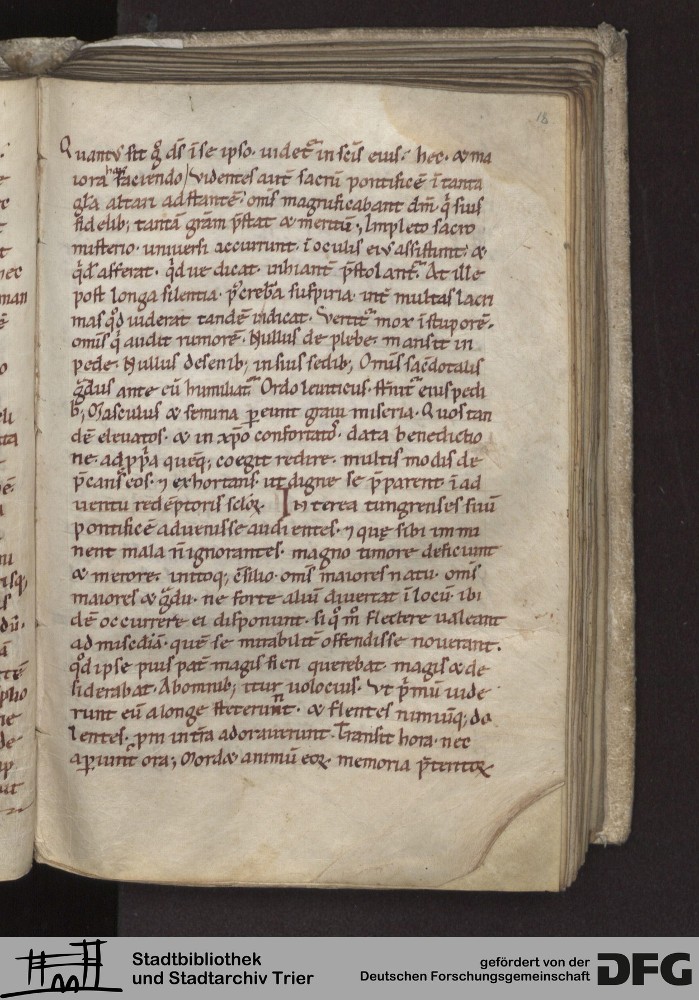 18
Quantus sit g̊ ds̄ ī se ipso. uidet᷑ in scīs eius. hec. & ma
iora faciendo; Videntes aut̄ sacrū pontificē ī tanta
gl̄a altari adstantē. om̄s magnificabant dm̄. q̇ suis
fidelib; tantā grām p̄stat & meritū; Impleto sacro
misterio. uniuersi accurrunt. ī oculis eius assistunt. &
qd̓ afferat. qd̓ ue dicat. inhiant̄ p̄stolant᷑. At ille
post longa silentia. p̓ crebra suspiria. int̄ multas lacri
mas qd̓ uiderat tandē indicat. Vertit᷑ mox ī stuporē.
om̄s q̇ audit rumorē. Nullus de plebe mansit in
pede. Nullus de senib; in suis sedib; Om̄is sac̄dotalis
gͣdus ante eū humiliat᷑. Ordo leuiticus. st̄nit᷑ eius pedi
b; Masculus & femina ꝑeunt graui miseria. Quos tan
dē eleuatos. & in xp̄o confortatos. data benedictio
ne. ad ꝓpͥa quēq; coegit redire. multis modis de
p̄cans eos. ⁊ exhortans. ut digne se p̄parent ī ad
uentu redēptoris sc̄loꝝ. Interea tungrenses suū
pontificē aduenisse audientes. ⁊ quę sibi immi
nent mala n̄ ignorantes. magno timore deficiunt
& merore. initoq; c̄silio. om̄s maiores natu. om̄s
maiores & gͣdu. ne forte aliū diuertat ī locū. ibi
dē occurrere ei disponunt. si q̊ m̊ flectere ualeant
ad misc̄diā. quē se mirabilit̄ offendisse nouerant.
qd̓ ipse pius pat̄ magis fieri querebat. magis & de
siderabat. Ab omnib; itur uolocius. Vt pͥmū uide
runt eū a longe steterunt. & flentes nimiūq; do
lentes. pm̄ in tr̄a adorauerunt. Transit hora. nec
aꝑiunt̄ ora; Mordet animū eoꝝ memoria p̄teritoꝝ
Stadtbibliothek
und Stadtarchiv Trier
gefördert von der
Deutschen Forschungsgemeinschaft
DFG